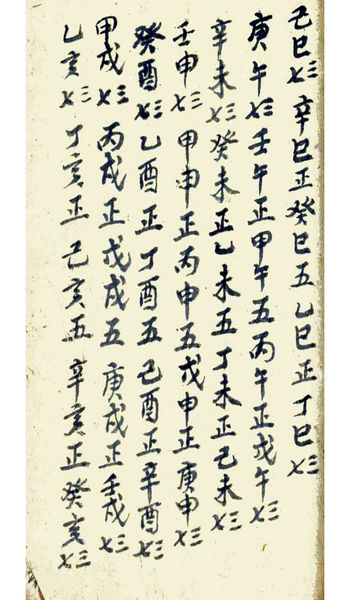 己巳七三辛巳正癸巳五乙巳正丁巳七三
庚午七三壬午正甲午五丙午正戊午七三
辛未七三癸未正乙未五丁未正己未七三
壬申七三甲申正丙申五戊申正庚申七三
癸酉七三乙酉正丁酉五己酉正辛酉七三
甲戌七三丙戌正戊戌五庚戌正壬戌七三
乙亥七三丁亥正己亥五辛亥正癸亥七三